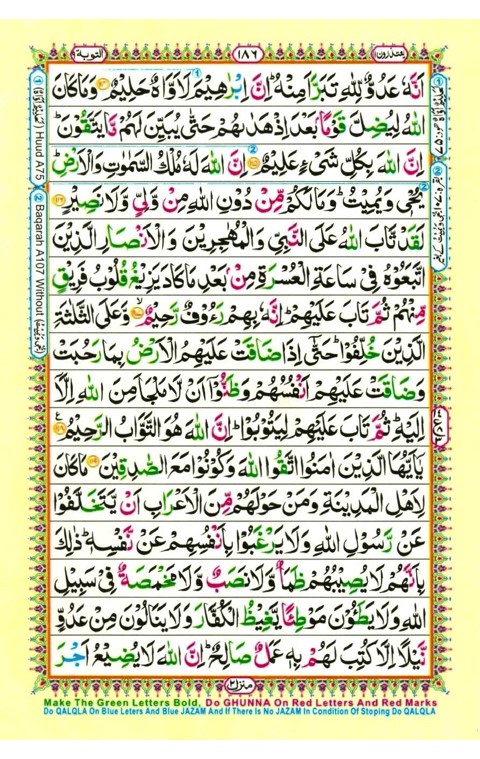 التوبة ۹
١٨٦
یعتذرون ۱۱
اَنَّهٗ عَدُوٌّ لِّلّٰهِ تَبَرَّاَ مِنْهُ ؕ اِنَّ اِبْرٰهِيْمَ لَاَوَّاهٌ حَلِيْمٌ ۝ وَمَا كَانَ
اللّٰهُ لِيُضِلَّ قَوْمًۢا بَعْدَ اِذْ هَدٰىهُمْ حَتّٰى يُبَيِّنَ لَهُمْ مَّا يَتَّقُوْنَ ؕ
اِنَّ اللّٰهَ بِكُلِّ شَىْءٍ عَلِيْمٌ ۝ اِنَّ اللّٰهَ لَهٗ مُلْكُ السَّمٰوٰتِ وَالْاَرْضِ ؕ
يُحْىٖ وَيُمِيْتُ ؕ وَمَا لَكُمْ مِّنْ دُوْنِ اللّٰهِ مِنْ وَّلِىٍّ وَّلَا نَصِيْرٍ ۝
لَقَدْ تَّابَ اللّٰهُ عَلَى النَّبِىِّ وَالْمُهٰجِرِيْنَ وَالْاَنْصَارِ الَّذِيْنَ
اتَّبَعُوْهُ فِىْ سَاعَةِ الْعُسْرَةِ مِنْۢ بَعْدِ مَا كَادَ يَزِيْغُ قُلُوْبُ فَرِيْقٍ
مِّنْهُمْ ثُمَّ تَابَ عَلَيْهِمْ ؕ اِنَّهٗ بِهِمْ رَءُوْفٌ رَّحِيْمٌ ۝ وَّعَلَى الثَّلٰثَةِ
الَّذِيْنَ خُلِّفُوْا ؕ حَتّٰۤى اِذَا ضَاقَتْ عَلَيْهِمُ الْاَرْضُ بِمَا رَحُبَتْ
وَضَاقَتْ عَلَيْهِمْ اَنْفُسُهُمْ وَظَنُّوْۤا اَنْ لَّا مَلْجَاَ مِنَ اللّٰهِ اِلَّاۤ
اِلَيْهِ ؕ ثُمَّ تَابَ عَلَيْهِمْ لِيَتُوْبُوْا ؕ اِنَّ اللّٰهَ هُوَ التَّوَّابُ الرَّحِيْمُ ۝
يٰۤاَيُّهَا الَّذِيْنَ اٰمَنُوا اتَّقُوا اللّٰهَ وَكُوْنُوْا مَعَ الصّٰدِقِيْنَ ۝ مَا كَانَ
لِاَهْلِ الْمَدِيْنَةِ وَمَنْ حَوْلَهُمْ مِّنَ الْاَعْرَابِ اَنْ يَّتَخَلَّفُوْا
عَنْ رَّسُوْلِ اللّٰهِ وَلَا يَرْغَبُوْا بِاَنْفُسِهِمْ عَنْ نَّفْسِهٖ ؕ ذٰلِكَ
بِاَنَّهُمْ لَا يُصِيْبُهُمْ ظَمَاٌ وَّلَا نَصَبٌ وَّلَا مَخْمَصَةٌ فِىْ سَبِيْلِ
اللّٰهِ وَلَا يَطَـُٔوْنَ مَوْطِئًا يَّغِيْظُ الْكُفَّارَ وَلَا يَنَالُوْنَ مِنْ عَدُوٍّ
نَّيْلًا اِلَّا كُتِبَ لَهُمْ بِهٖ عَمَلٌ صَالِحٌ ؕ اِنَّ اللّٰهَ لَا يُضِيْعُ اَجْرَ
Huud A75
Baqarah A107 Without
منزل ۲
Make The Green Letters Bold, Do GHUNNA On Red Letters And Red Marks
Do QALQLA On Blue Leters And Blue JAZAM And If There Is No JAZAM In Condition Of Stoping Do QALQLA